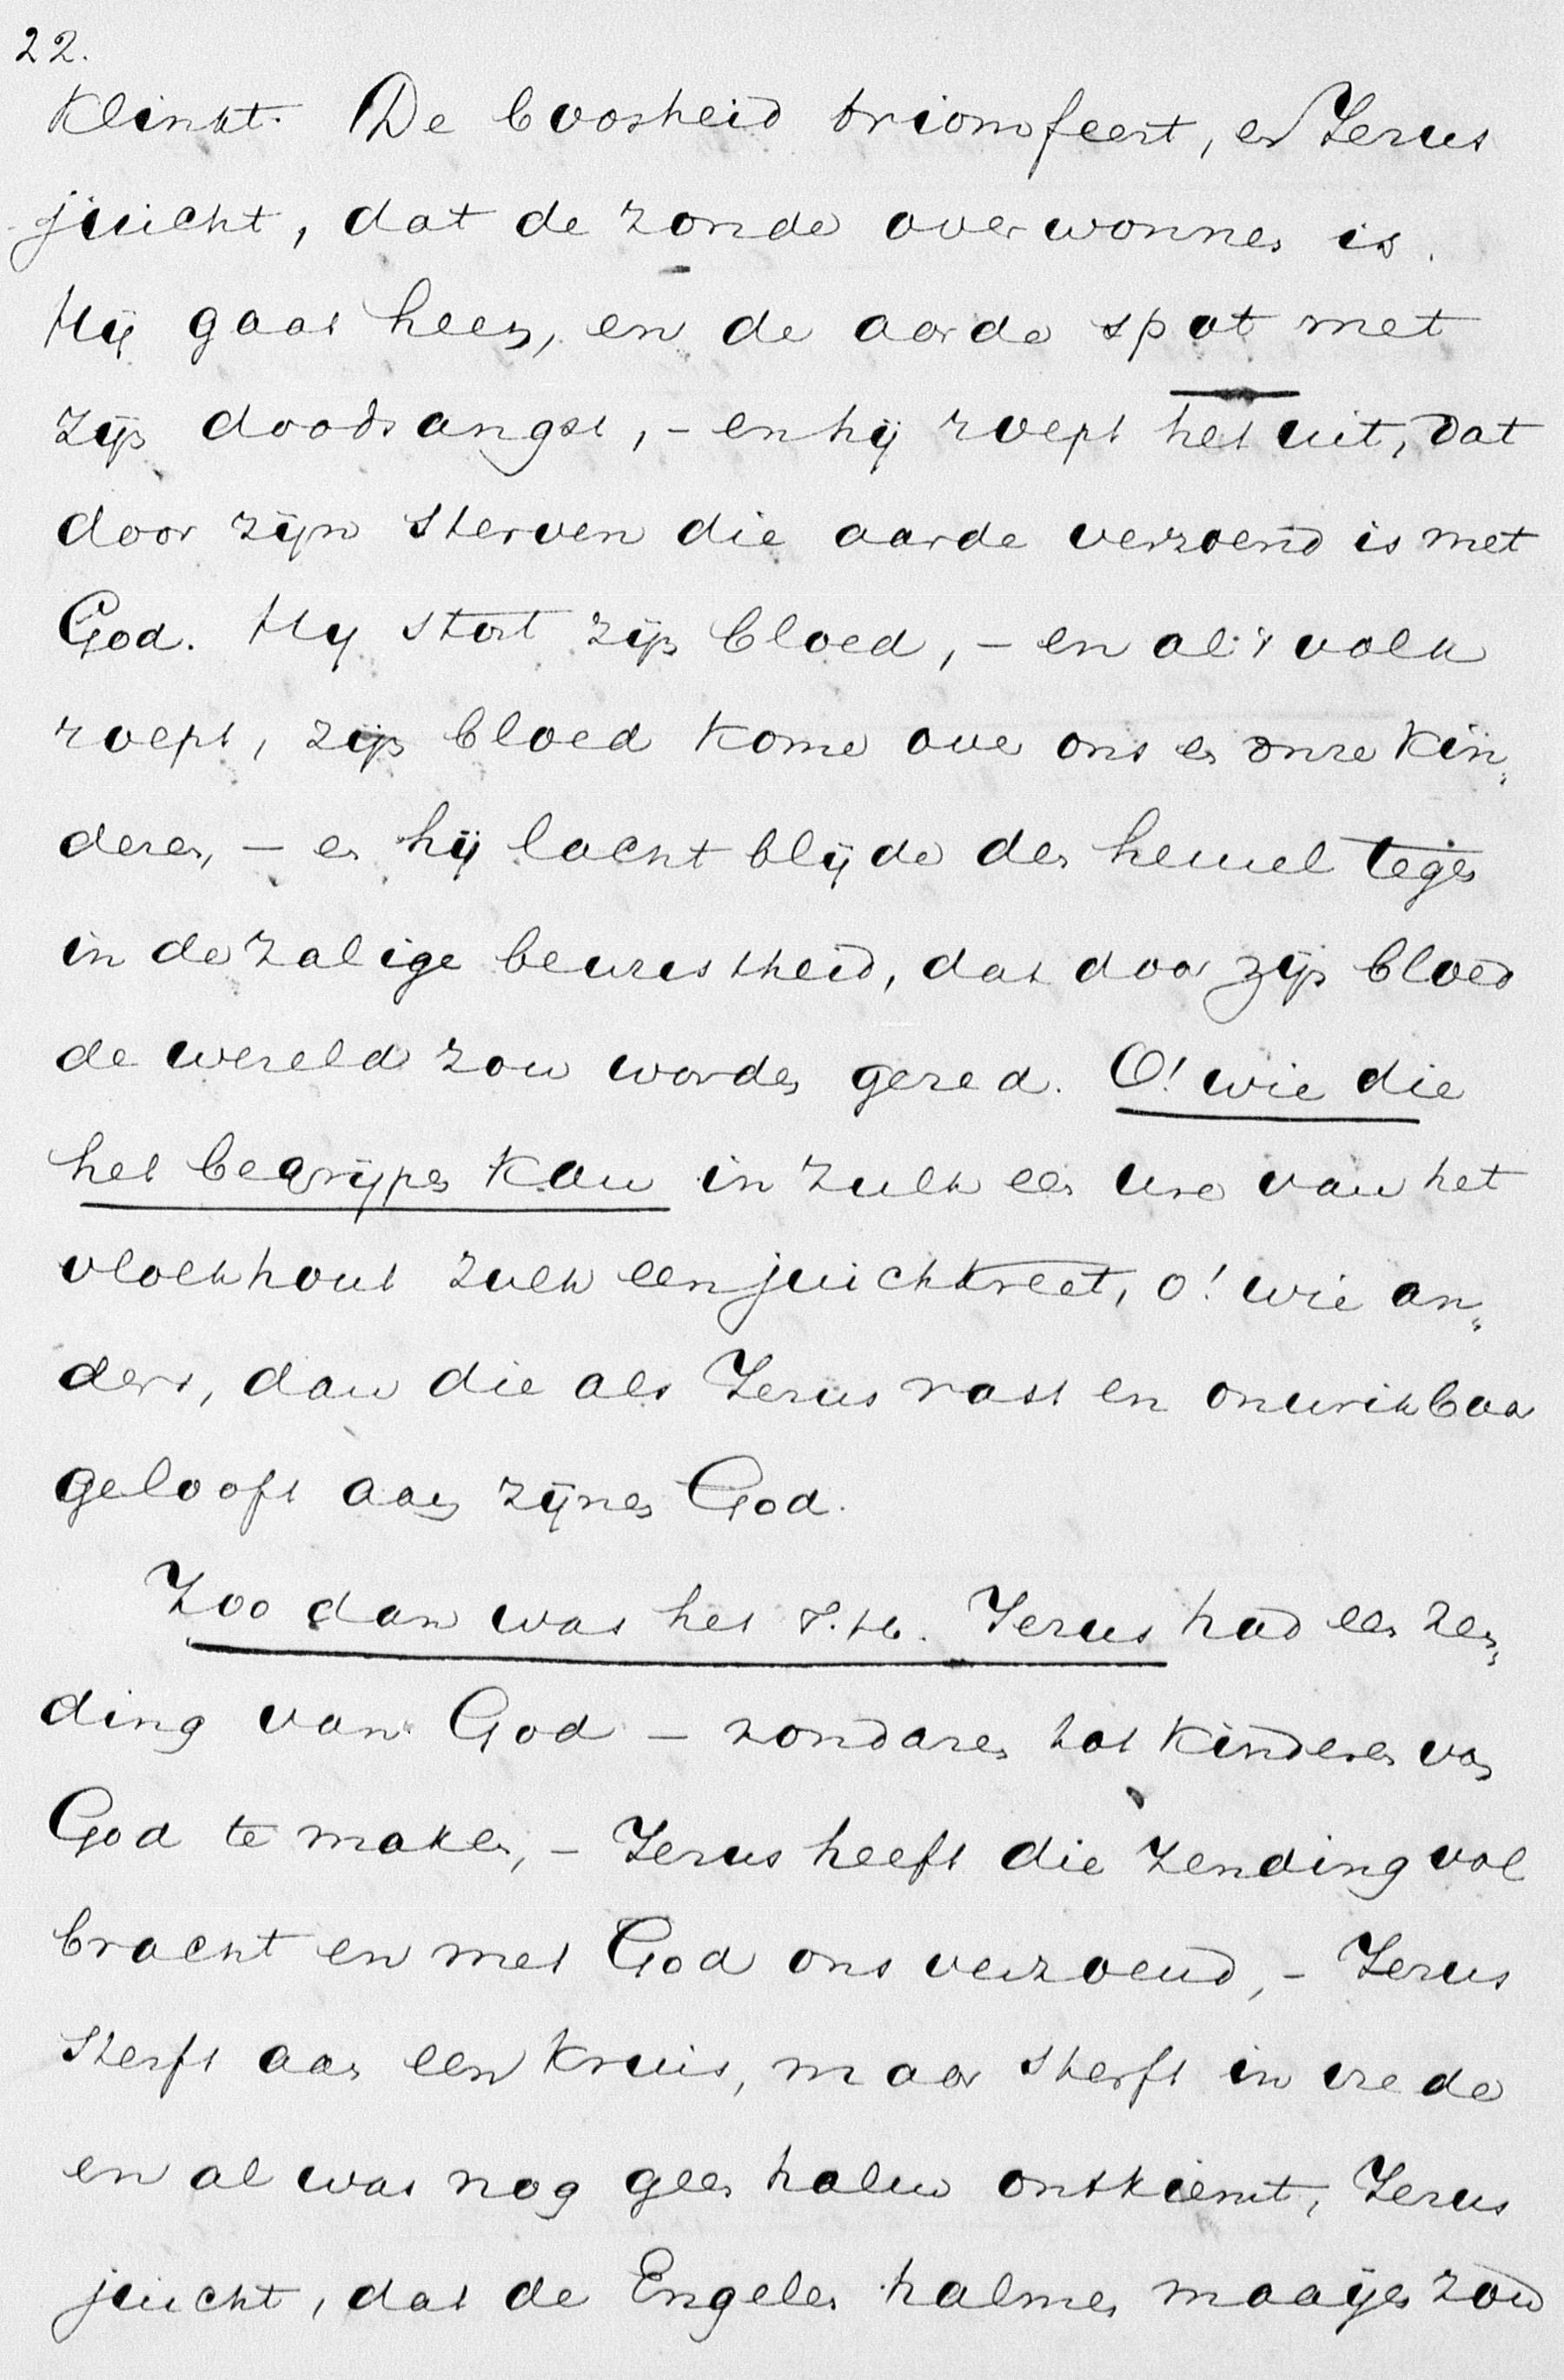 22.
klinkt. De boosheid triomfeert, en Jezus
juicht, dat de zonde overwonnen is.
Hij gaat heen, en de aarde spot met
zijn doodsangst, - en hij roept het uit, dat
door zijn sterven die aarde verzoend is met
God. Hij stort zijn bloed, - en al 't volk
roept, zijn bloed kome over ons en onze kin„
deren, - en hij lacht blijde den hemel tegen
in de zalige bewustheid, dat door zijn bloed
de wereld zou worden gered. O! wie die
het begrijpen kan in zulk een ure van het
vloekhout zulk een juichkreet, o! wie an„
ders, dan die als Jezus vast en onwrikbaar
gelooft aan zijnen God.
Zoo dan was het T.H. Jezus had een zen„
ding van God - zondaren tot kinderen van
God te maken, - Jezus heeft die zending vol
bracht en met God ons verzoend, - Jezus
sterft aan een kruis, maar sterft in vrede
en al was nog geen halm ontkiemt, Jezus
juicht, dat de Engelen halmen maaijen zou